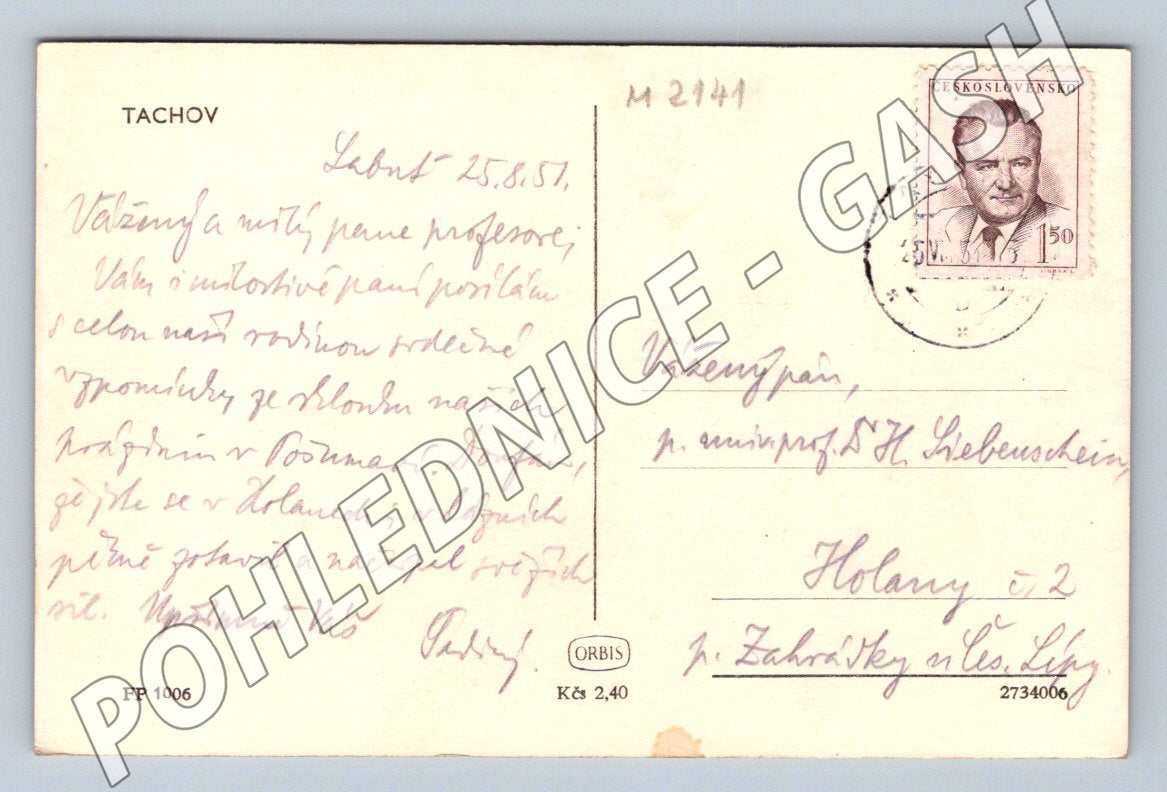 TACHOV
M 2141
ČESKOSLOVENSKO
1 50
Labuť 25.8.51.
Vážený a milý pane profesore,
Vám i milostivé paní posílám
s celou naší rodinou srdečné
vzpomínky ze sklonku našich
prázdnin v Pošumaví. Doufám,
že jste se v Holanech i v lázních
pěkně zotavil a načerpal svěžích
sil. Upřímně Váš
Vážený pán,
p. univ. prof. Dr H. Siebenschein,
Holany č. 2
p. Zahrádky u Čes. Lípy.
ORBIS
FP 1006
Kčs 2,40
2734006
POHLEDNICE - GASH